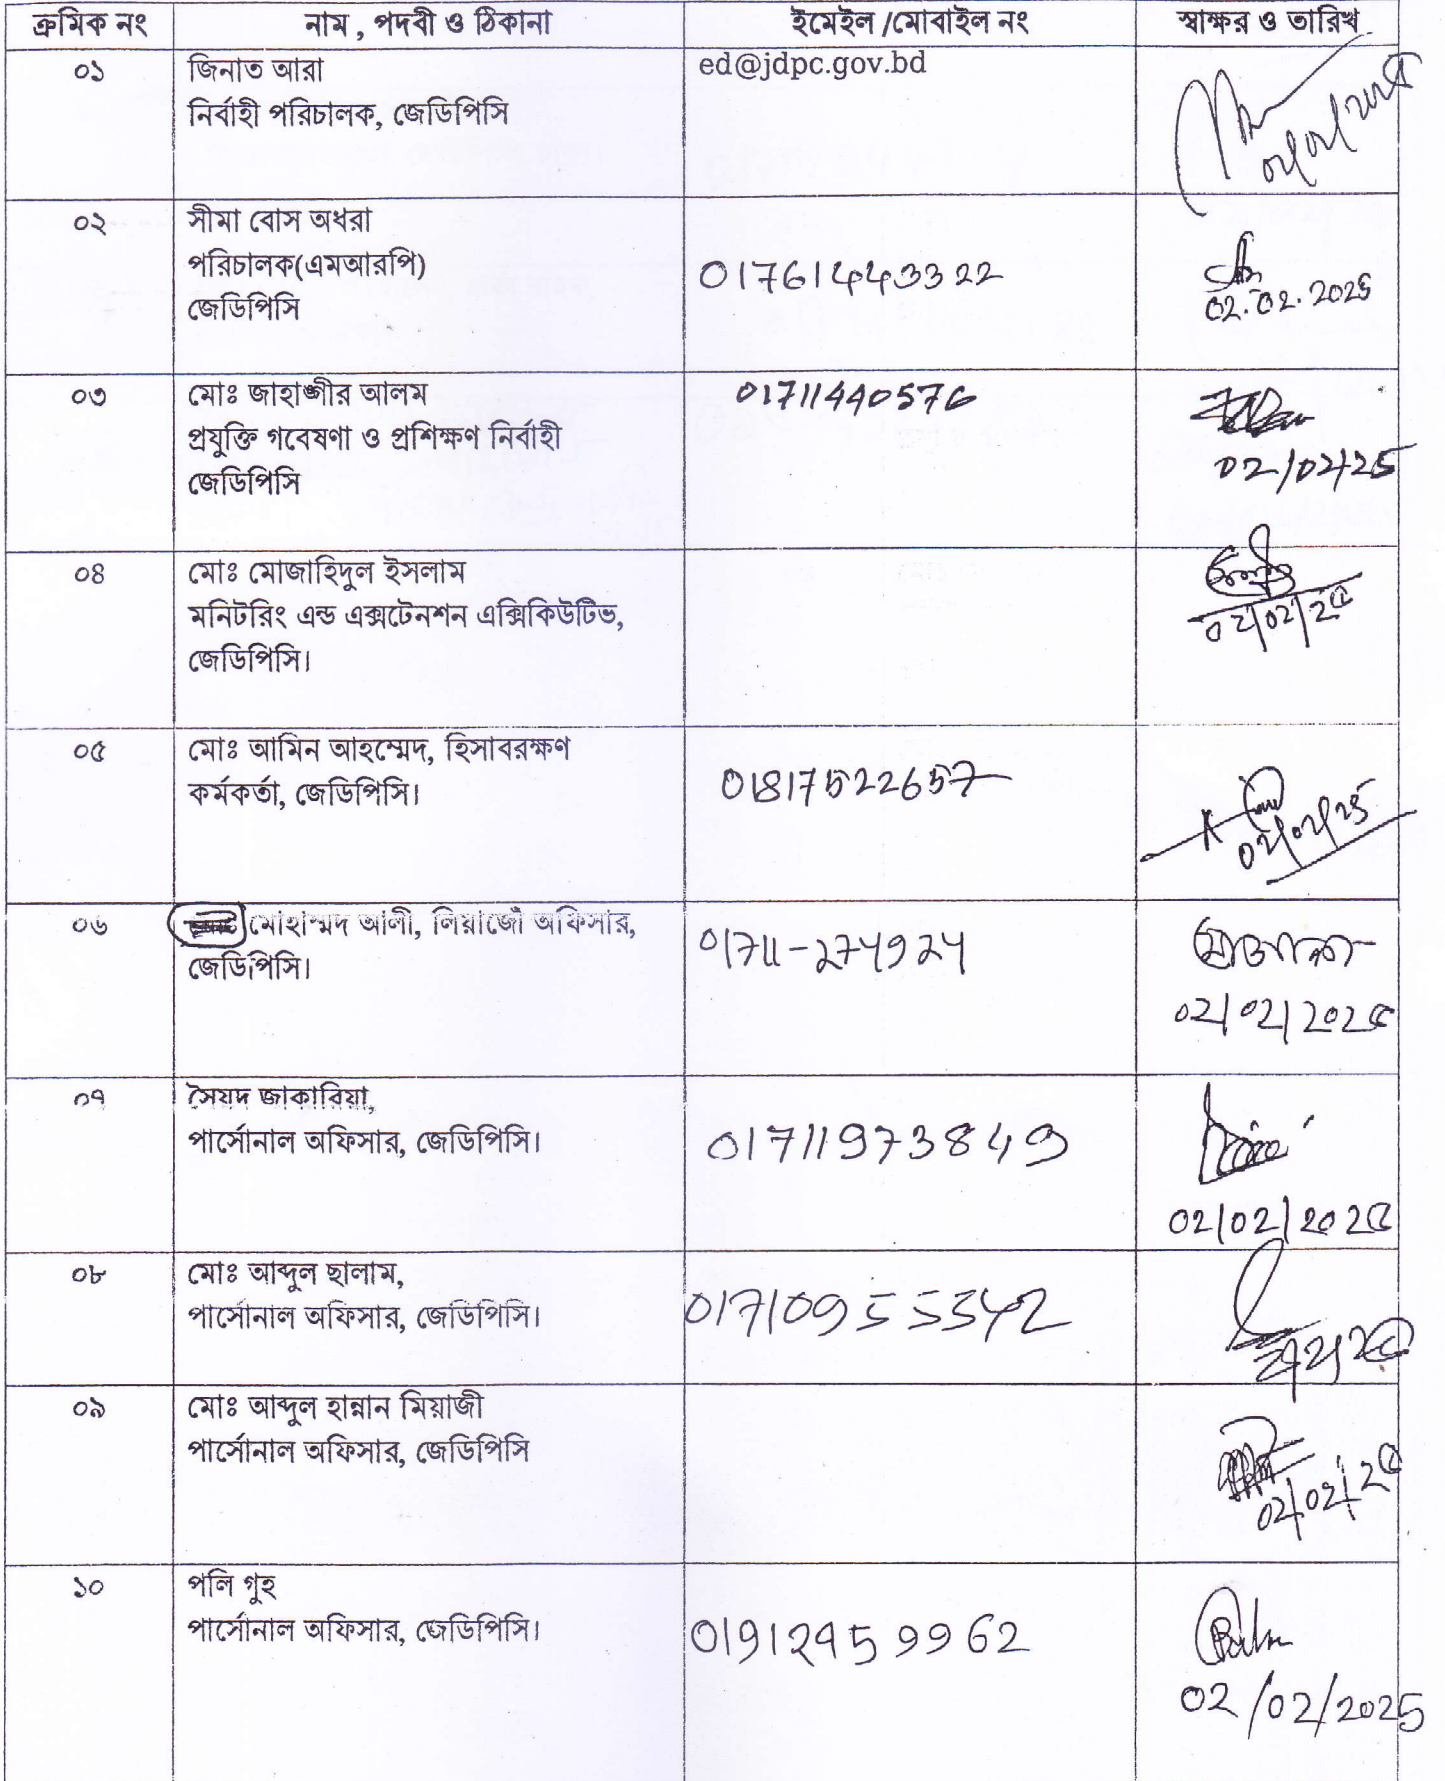 ক্রমিক নং নাম , পদবী ও ঠিকানা ইমেইল /মোবাইল নং স্বাক্ষর ও তারিখ
০১ জিনাত আরা ed@jdpc.gov.bd
নির্বাহী পরিচালক, জেডিপিসি
০২ সীমা বোস অধরা
পরিচালক(এমআরপি) 01761443322
জেডিপিসি 02.02.2025
০৩ মোঃ জাহাঙ্গীর আলম 01711440576
প্রযুক্তি গবেষণা ও প্রশিক্ষণ নির্বাহী
জেডিপিসি 02/02/25
০৪ মোঃ মোজাহিদুল ইসলাম
মনিটরিং এন্ড এক্সটেনশন এক্সিকিউটিভ, 02/02/2৫
জেডিপিসি।
০৫ মোঃ আমিন আহম্মেদ, হিসাবরক্ষণ
কর্মকর্তা, জেডিপিসি। 01817522657
02/02/25
০৬ মোহাম্মদ আলী, লিয়াজোঁ অফিসার, 01711-274924
জেডিপিসি।
02/02/202৫
০৭ সৈয়দ জাকারিয়া,
পার্সোনাল অফিসার, জেডিপিসি। 01711973849
02/02/202৫
০৮ মোঃ আব্দুল ছালাম,
পার্সোনাল অফিসার, জেডিপিসি। 01710955342
০৯ মোঃ আব্দুল হান্নান মিয়াজী
পার্সোনাল অফিসার, জেডিপিসি
02/02/2৫
১০ পলি গুহ
পার্সোনাল অফিসার, জেডিপিসি। 01912959962
02/02/2025